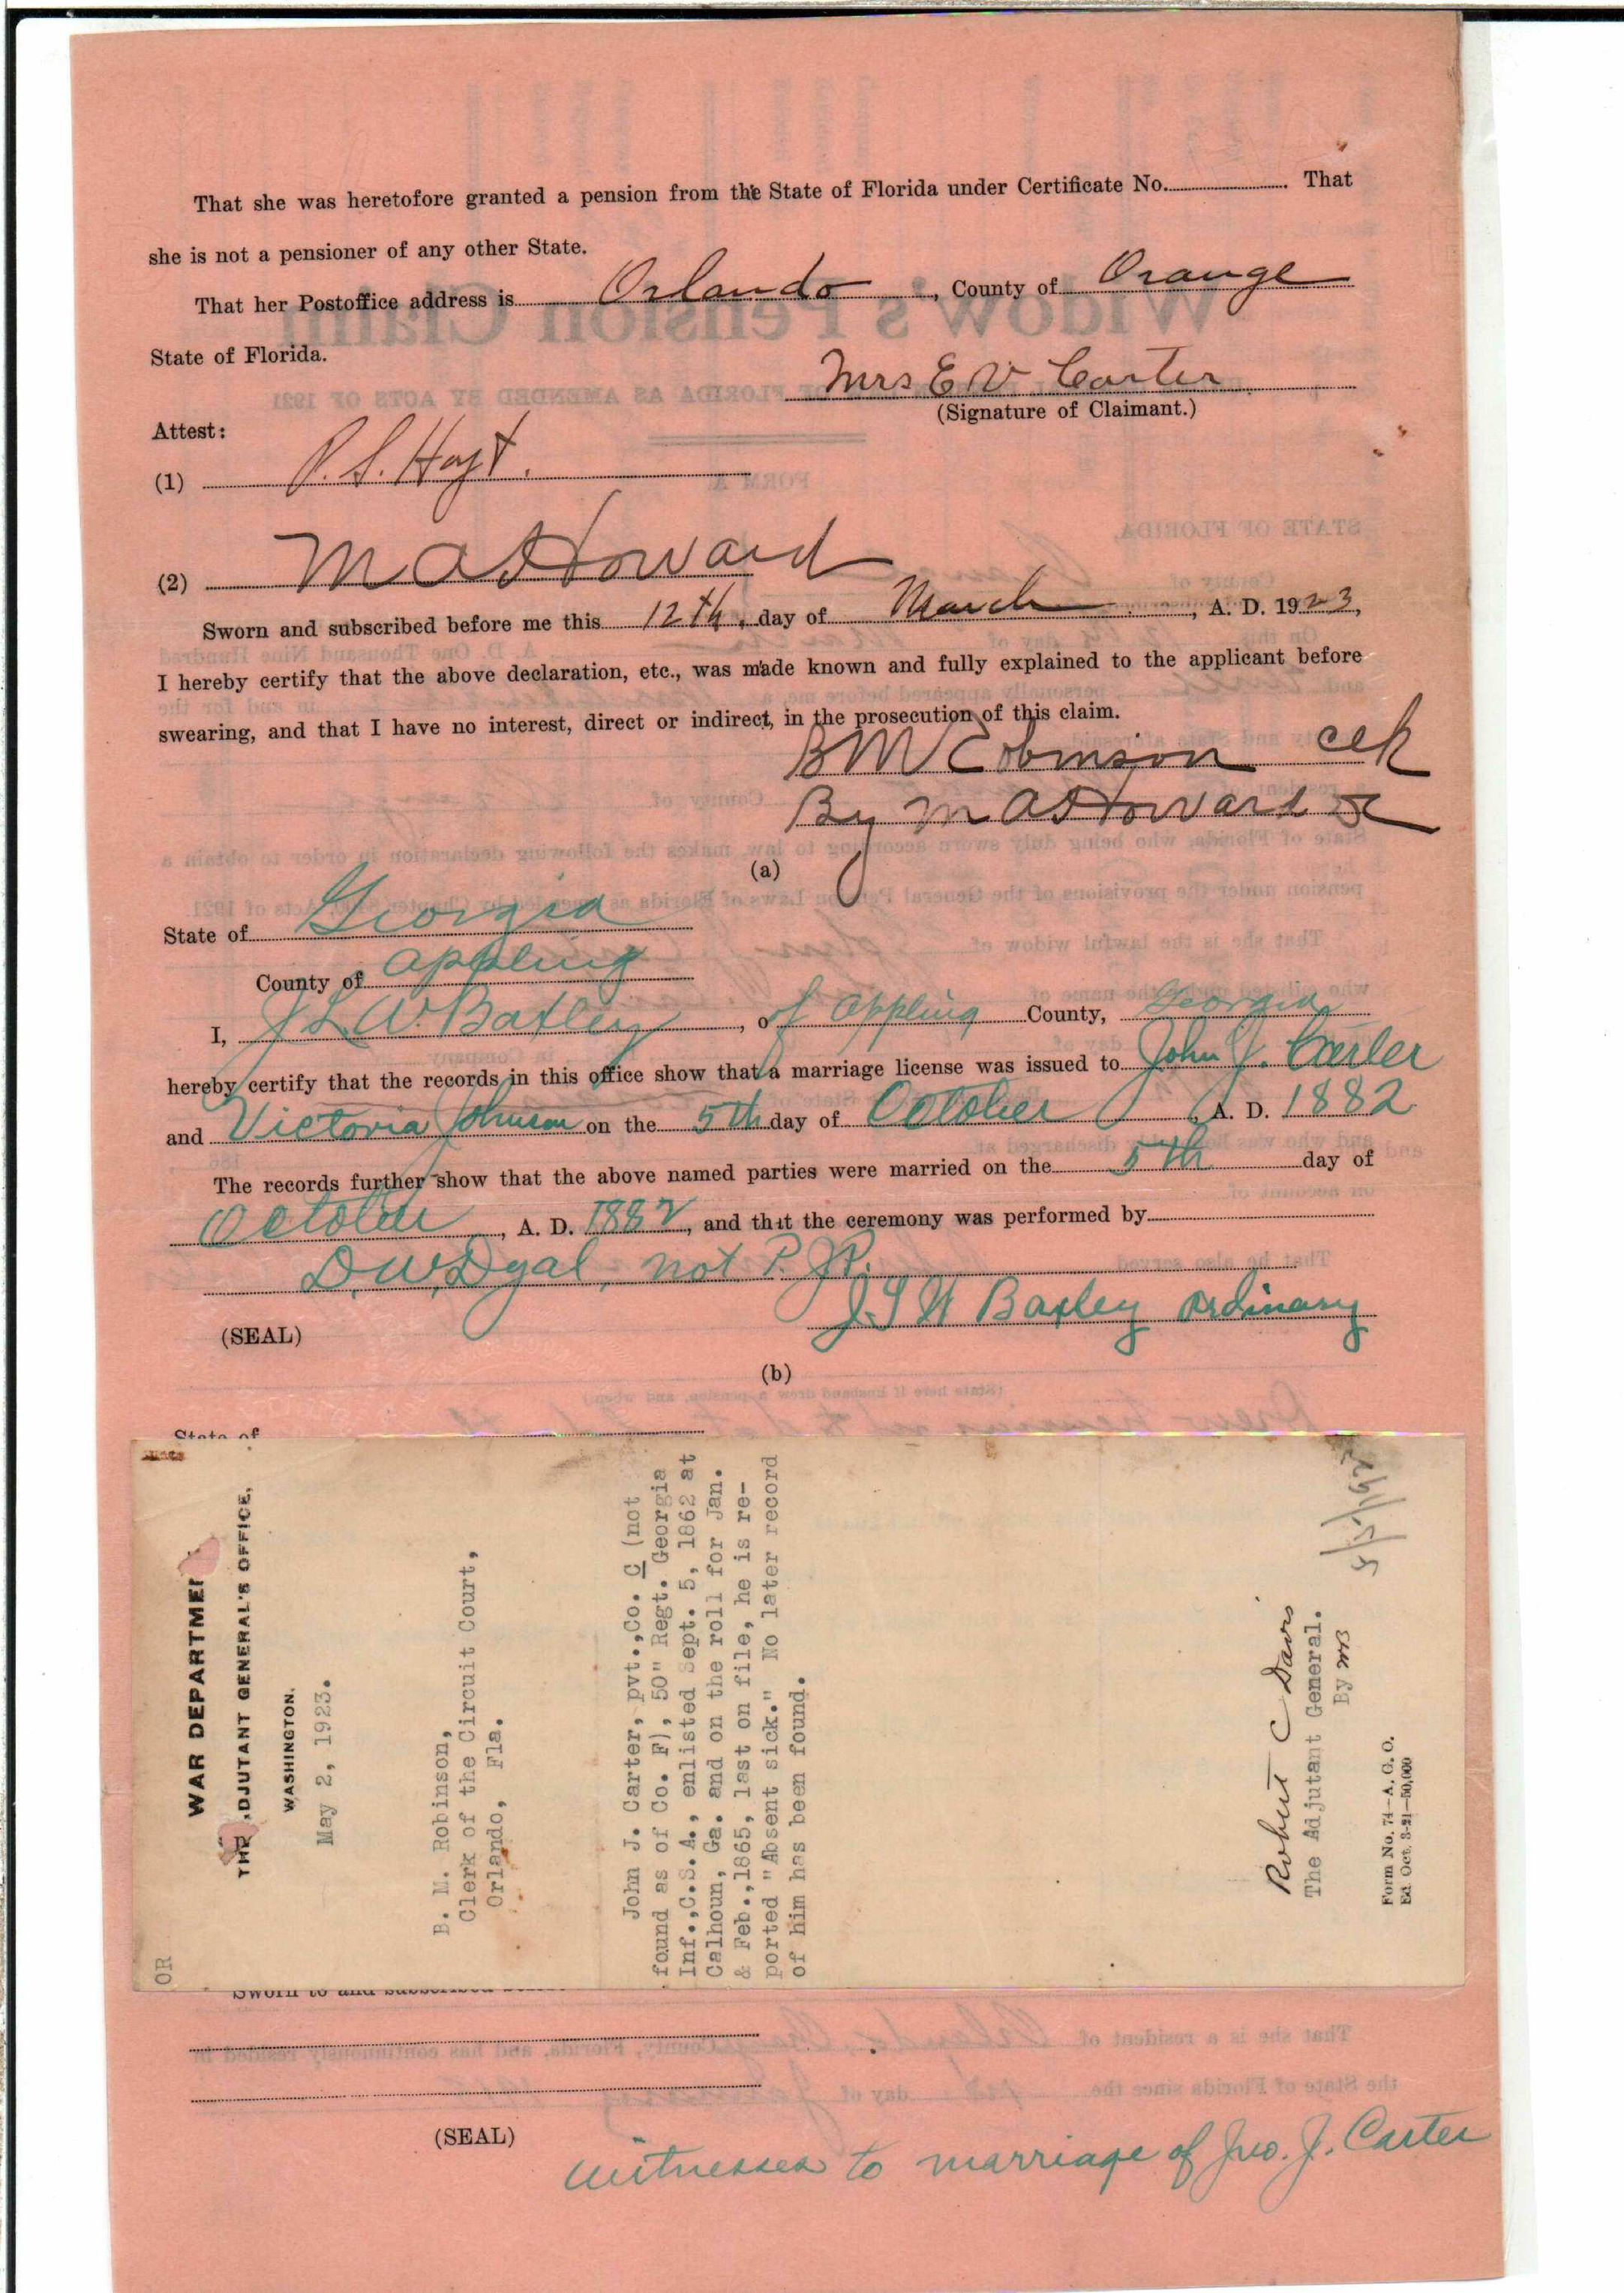 That she was heretofore granted a pension from the State of Florida under Certificate No. That
she is not a pensioner of any other State.
That her Postoffice address is Orlando, County of Orange
State of Florida.
Mrs E V Carter
(Signature of Claimant.)
Attest:
(1) P. S. Hoyt.
(2) M A Howard
Sworn and subscribed before me this 12th, day of March, A. D. 1923,
I hereby certify that the above declaration, etc., was made known and fully explained to the applicant before
swearing, and that I have no interest, direct or indirect, in the prosecution of this claim.
B M Robinson Clk
By M A Howard DC
(a)
State of Georgia
County of Appling
I, J L W. Baxley, of Appling County, Georgia
hereby certify that the records in this office show that a marriage license was issued to John J. Carter
and Victoria Johnson on the 5th day of October, A. D. 1882
The records further show that the above named parties were married on the 5th day of
October, A. D. 1882, and that the ceremony was performed by
D. W. Dyal, not P. JP.
J. L W Baxley Ordinary
(SEAL)
(b)
State of
WAR DEPARTMEN
THE ADJUTANT GENERAL'S OFFICE,
WASHINGTON.
May 2, 1923.
B. M. Robinson,
Clerk of the Circuit Court,
Orlando, Fla.
John J. Carter, pvt., Co. C (not
found as of Co. F), 50" Regt. Georgia
Inf., C.S.A., enlisted Sept. 5, 1862 at
Calhoun, Ga. and on the roll for Jan.
& Feb., 1865, last on file, he is re-
ported "Absent sick." No later record
of him has been found.
Robert C Davis
The Adjutant General.
By
Form No. 74—A. G. O.
Ed. Oct. 3-21—50,000
OR
Sworn to and subscribed
(SEAL)
Witnesses to marriage of Jno. J. Carter